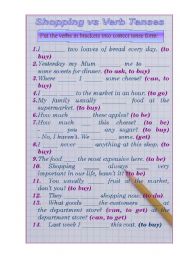 Shopping vs Verb Tenses
Put the verbs in brackets into correct tense form.
1.I ___ two loaves of bread every day. (to
buy)
2.Yesterday my Mum ___ me to ___
some sweets for dinner. (to ask, to buy)
3.Where ___ I ___ some cheese? (can, to
buy)
4.I ___ to the market in an hour. (to go)
5.My family usually ___ food at the
supermarket. (to buy)
6.How much ___ these apples? (to be)
7.How much ___ this cheese? (to be)
8. ___ you ___ any sugar? (to buy)
- No, I haven't. We ___ some. (get)
8.I never ___ anything at this shop. (to
buy)
9.The food ___ the most expensive here. (to be)
10. Shopping always ___ very
important in our life, hasn't it? (to be)
11. You usually ___ fruit at the market,
don't you? (to buy)
12. They ___ shopping now. (to do)
13. What goods ___ the customers ___ at
the department store? (can, to get) at the
department store? (can, to get)
14. Last week I ___ this coat. (to buy)